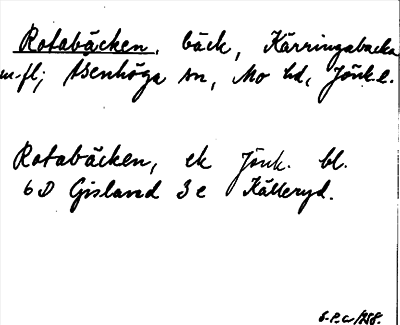 Rotabäcken, bäck, Kärringabacka
m. fl; Åsenhöga sn, Mo hd, Jönk. l.
Rotabäcken, ek Jönk. bl.
6D Gisland 3e Källeryd.